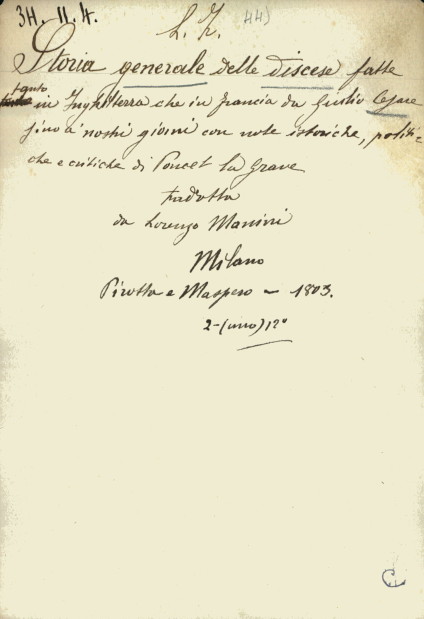 34. 11. 4.
L. I. 44)
Storia generale delle discese fatte
tanto
in Inghilterra che in Francia da Giulio Cesare
fino a' nostri giorni con note istoriche, politi-
che e critiche di Poncet la Grave
tradotta
da Lorenzo Manini
Milano
Pirotta e Maspero - 1803.
2-(uno) 12º